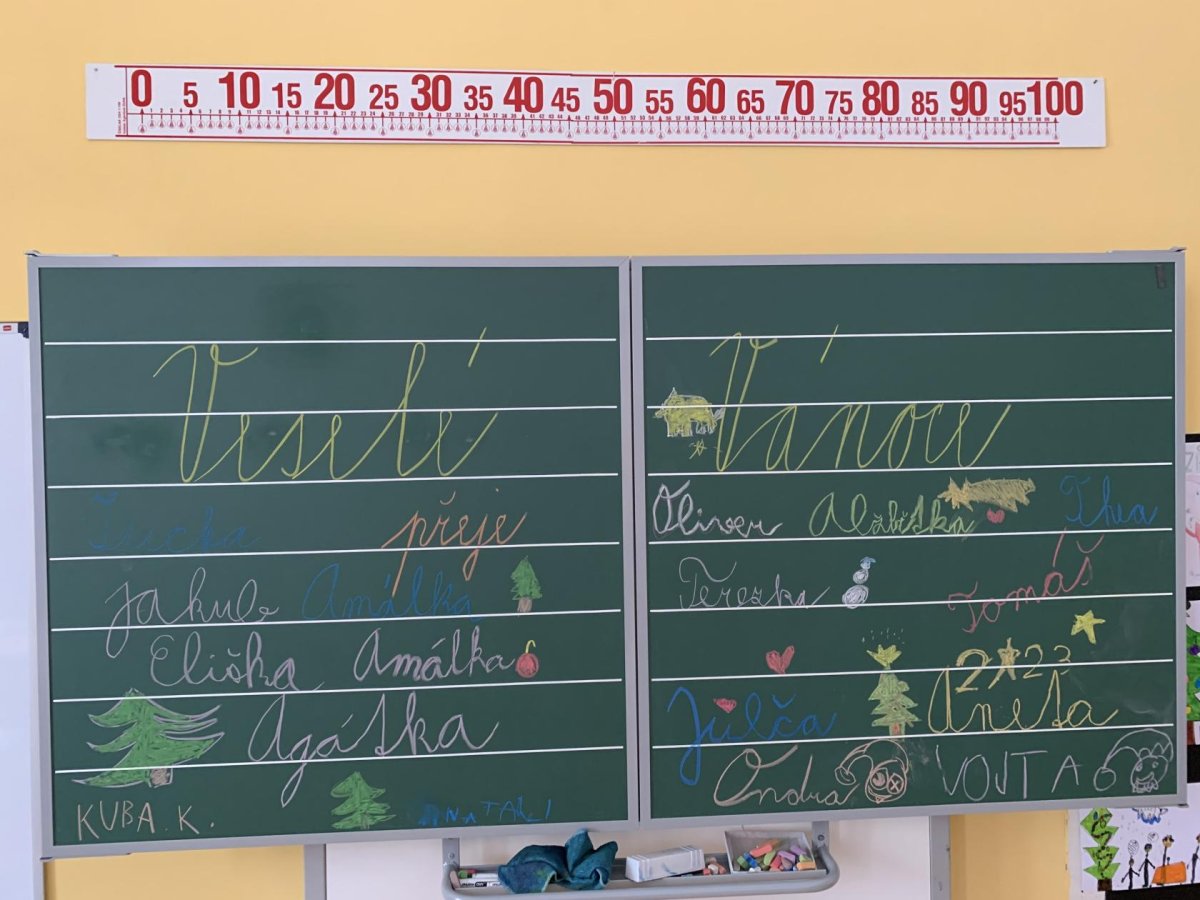 0 5 10 15 20 25 30 35 40 45 50 55 60 65 70 75 80 85 90 95 100
Veselé Vánoce
přeje
Oliver
Jakub Amálka
Terezka
Tomáš
Eliška Amálka
2023
Agátka
Julča
Aneta
KUBA K.
Ondra
VOJTA